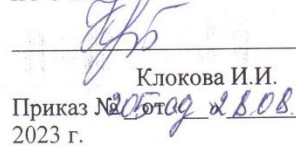 Клокова И.И.
Приказ № 205од от « » 28.08.
2023 г.